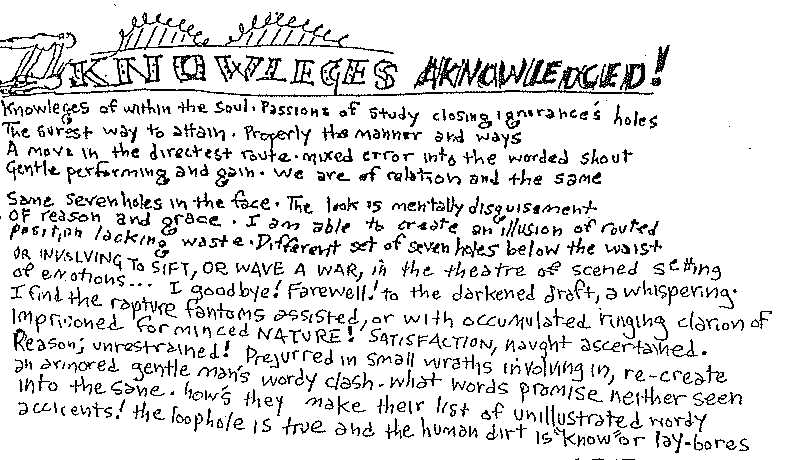 KNOWLEGES AKNOWLEDGED!
Knowleges of within the soul. Passions of study closing ignorance's holes
The surest way to attain. Properly the manner and ways
A move in the directest route. mixed error into the worded shout
Gentle performing and gain. we are of relation and the same
Same seven holes in the face. The look is mentally disguisement
OF reason and grace. I am able to create an illusion of routed
position lacking waste. Different set of seven holes below the waist
OR INVOLVING TO SIFT, OR WAVE A WAR, in the theatre of scened setting
of emotions... I goodbye! Farewell! to the darkened draft, a whispering.
I find the rapture fantoms assisted, or with accumulated ringing clarion of
Imprisoned for minced NATURE! SATISFACTION, naught ascertained.
Reason; unrestrained! Prejurred in small wraths involving in, re-create
an armored gentle man's wordy clash. what words promise neither seen
into the sane. how's they make their list of unillustrated wordy
accicents! the loophole is true and the human dirt is "know" or lay-bores